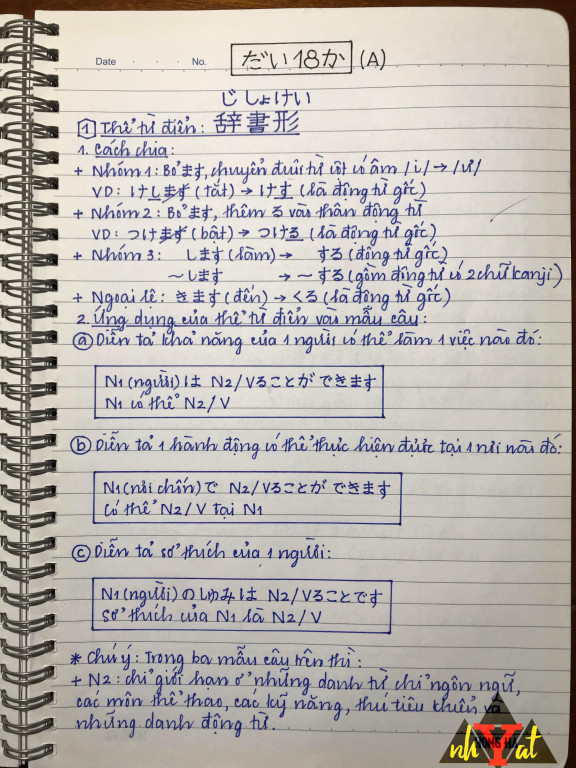 Date . . . No.
だい18か (A)
じしょけい
1 Thể từ điển: 辞書形
1. Cách chia:
+ Nhóm 1: Bỏ ます, chuyển đuôi từ cột có âm /i/ → /ư/
VD: けします (tắt) → けす (là động từ gốc)
+ Nhóm 2: Bỏ ます, thêm る vào thân động từ
VD: つけます (bật) → つける (là động từ gốc)
+ Nhóm 3: します (làm) → する (động từ gốc)
~します → ~する (gồm động từ có 2 chữ kanji)
+ Ngoại lệ: きます (đến) → くる (là động từ gốc)
2. Ứng dụng của thể từ điển vào mẫu câu:
a Diễn tả khả năng của 1 người có thể làm 1 việc nào đó:
N1 (người) は N2/Vることが できます
N1 có thể N2/V
b Diễn tả 1 hành động có thể thực hiện được tại 1 nơi nào đó:
N1 (nơi chốn) で N2/Vることが できます
Có thể N2/V tại N1
c Diễn tả sở thích của 1 người:
N1 (người) のしゅみは N2/Vることです
Sở thích của N1 là N2/V
* Chú ý: Trong ba mẫu câu trên thì:
+ N2: chỉ giới hạn ở những danh từ chỉ ngôn ngữ,
các môn thể thao, các kỹ năng, thú tiêu khiển và
những danh động từ.
nhYat